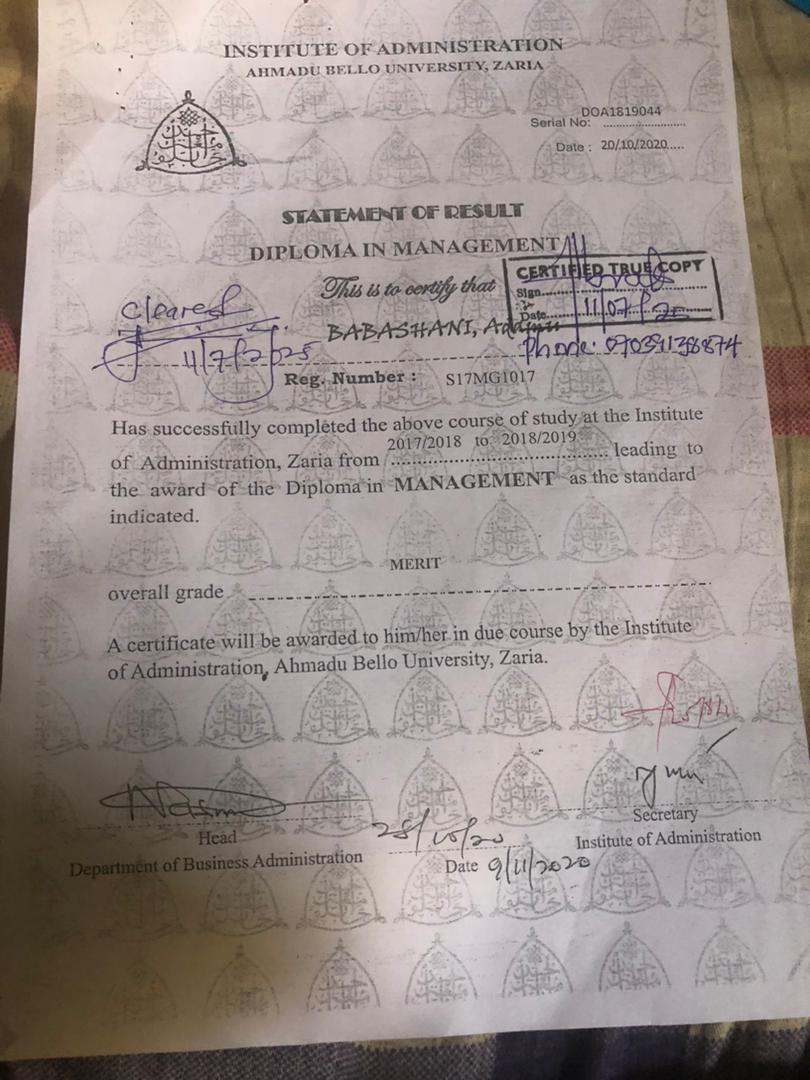 INSTITUTE OF ADMINISTRATION
AHMADU BELLO UNIVERSITY, ZARIA
DOA1819044
Serial No: ........................
Date : 20/10/2020.....
STATEMENT OF RESULT
DIPLOMA IN MANAGEMENT
This is to certify that
CERTIFIED TRUE COPY
Sign....................
Date.......11/07/25
Phone: 07039138874
Cleared
11/7/2025
BABASHANI,
Reg. Number : S17MG1017
Has successfully completed the above course of study at the Institute
2017/2018 to 2018/2019
of Administration, Zaria from ........................................ leading to
the award of the Diploma in MANAGEMENT as the standard
indicated.
MERIT
overall grade ------------------------------------------------
A certificate will be awarded to him/her in due course by the Institute
of Administration, Ahmadu Bello University, Zaria.
Head
Department of Business Administration
28/10/20
Date 9/11/2020
Secretary
Institute of Administration